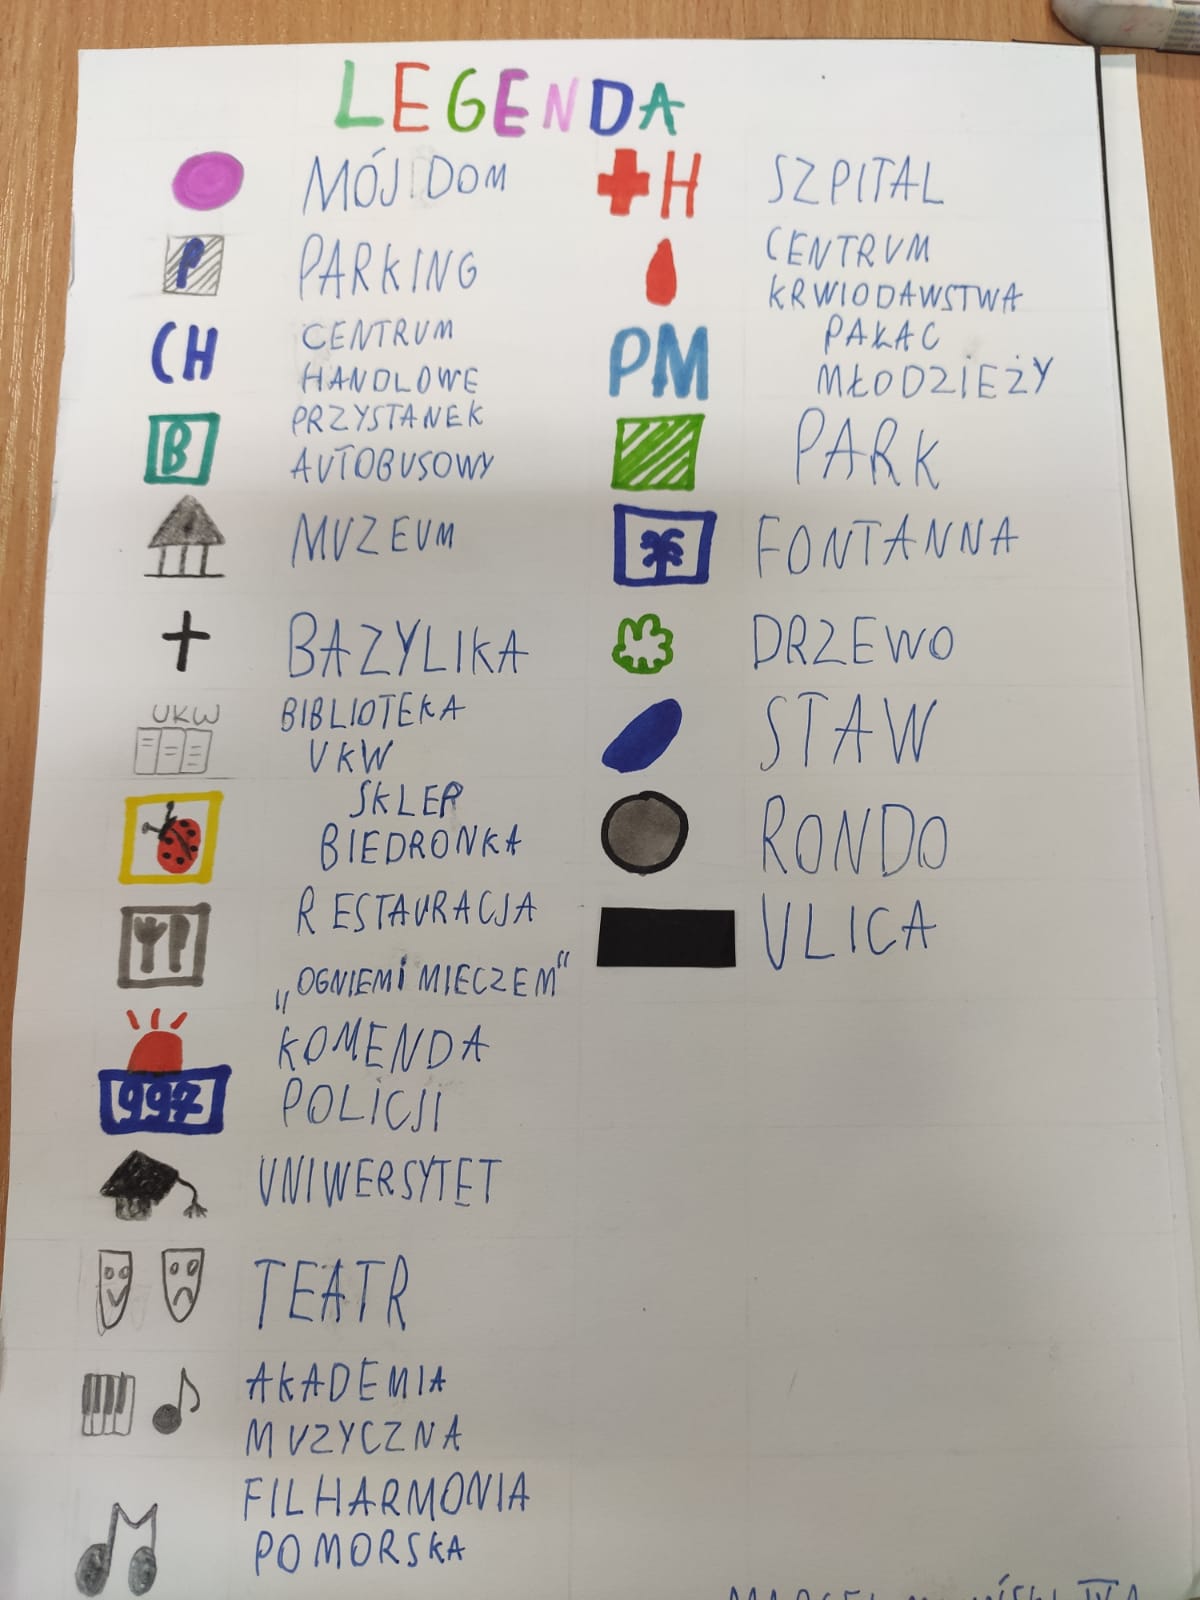 LEGENDA
MÓJ DOM
P
PARKING
CH
CENTRUM
HANDLOWE
B
PRZYSTANEK
AUTOBUSOWY
MUZEUM
BAZYLIKA
UKW
BIBLIOTEKA
UKW
SKLEP
BIEDRONKA
RESTAURACJA
„OGNIEM i MIECZEM“
997
KOMENDA
POLICJI
UNIWERSYTET
TEATR
AKADEMIA
MUZYCZNA
FILHARMONIA
POMORSKA
H
SZPITAL
CENTRUM
KRWIODAWSTWA
PM
PAŁAC
MŁODZIEŻY
PARK
FONTANNA
DRZEWO
STAW
RONDO
ULICA
IV A